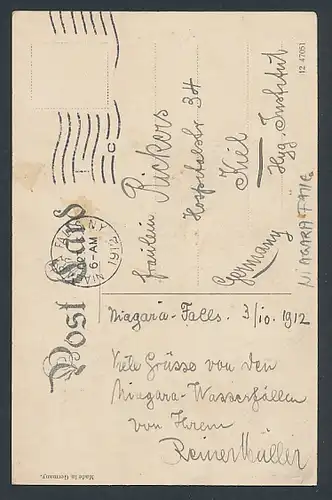 Post Card
NIAGARA FALLS
NY
6-AM
1912
Fräulein Rickers
Hospitalstr 34
Kiel
Hyg. Institut
Germany
NIAGARA FÄLLE
12 47051
Niagara-Falls. 3/10. 1912
Viele Grüsse von den
Niagara-Wasserfällen
von Ihrem
Reiner Müller
Made in Germany.